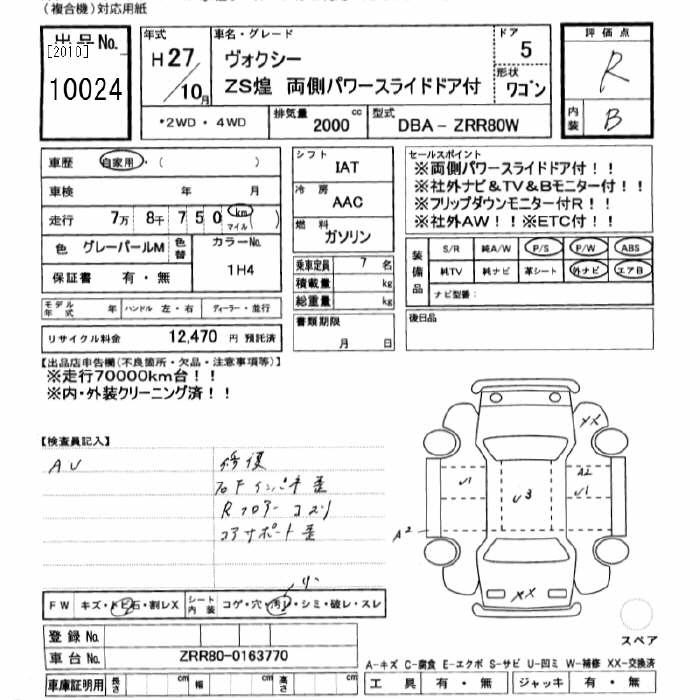 (複合機)対応用紙
出品No.
[2010]
10024
年式
H27/10月
車名・グレード
ヴォクシー
ZS煌 両側パワースライドドア付
ドア
5
形状
ワゴン
評価点
R
内装
B
*2WD・4WD
排気量
2000 cc
型式
DBA-ZRR80W
車歴
自家用・( )
車検 年 月
走行 7万 8千 7 5 0 km マイル ( )
色 グレーパールM
色替
カラーNo.
1H4
保証書 有・無
モデル年式 年
ハンドル 左・右
ディーラー・並行
リサイクル料金 12,470 円 預託済
シフト
IAT
冷房
AAC
燃料
ガソリン
乗車定員 7 名
積載量 kg
総重量 kg
書類期限
月 日
セールスポイント
※両側パワースライドドア付!!
※社外ナビ&TV&Bモニター付!!
※フリップダウンモニター付R!!
※社外AW!!※ETC付!!
装備品
S/R 純A/W P/S P/W ABS
純TV 純ナビ 革シート 外ナビ エアB
ナビ型番:
後日品
【出品店申告欄(不良箇所・欠品・注意事項等)】
※走行70000km台!!
※内・外装クリーニング済!!
【検査員記入】
AU
修復
Rフロアー
コアサポート
XX
A2
U1
U1
U3
A2
XX
FW キズ・トビ石・割レX
シート内装 コゲ・穴・汚レ・シミ・破レ・スレ
登録No.
車台No. ZRR80-0163770
車庫証明用 長さ cm 幅 cm 高さ cm
スペア
A-キズ C-腐食 E-エクボ S-サビ U-凹ミ W-補修 XX-交換済
工具 有・無 ジャッキ 有・無